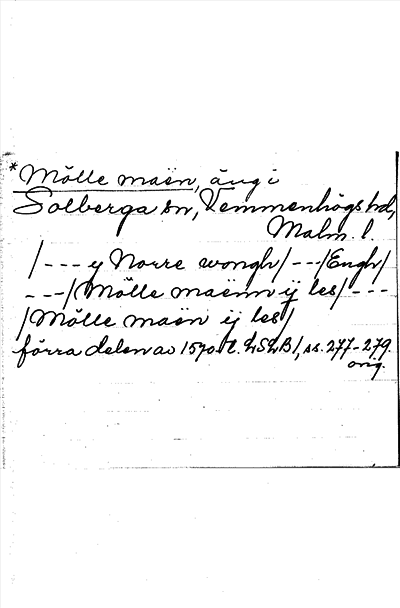 *Mölle maen, äng i
Solberga sn, Vemmenhögs hd,
Malm. l.
/--- y Norre wongh/---/Engh/
---/Mölle maenn ij les/---
/Mölle maen ij les/
förra delen av 1570-t. LSLB1, ss. 277-279.
orig.